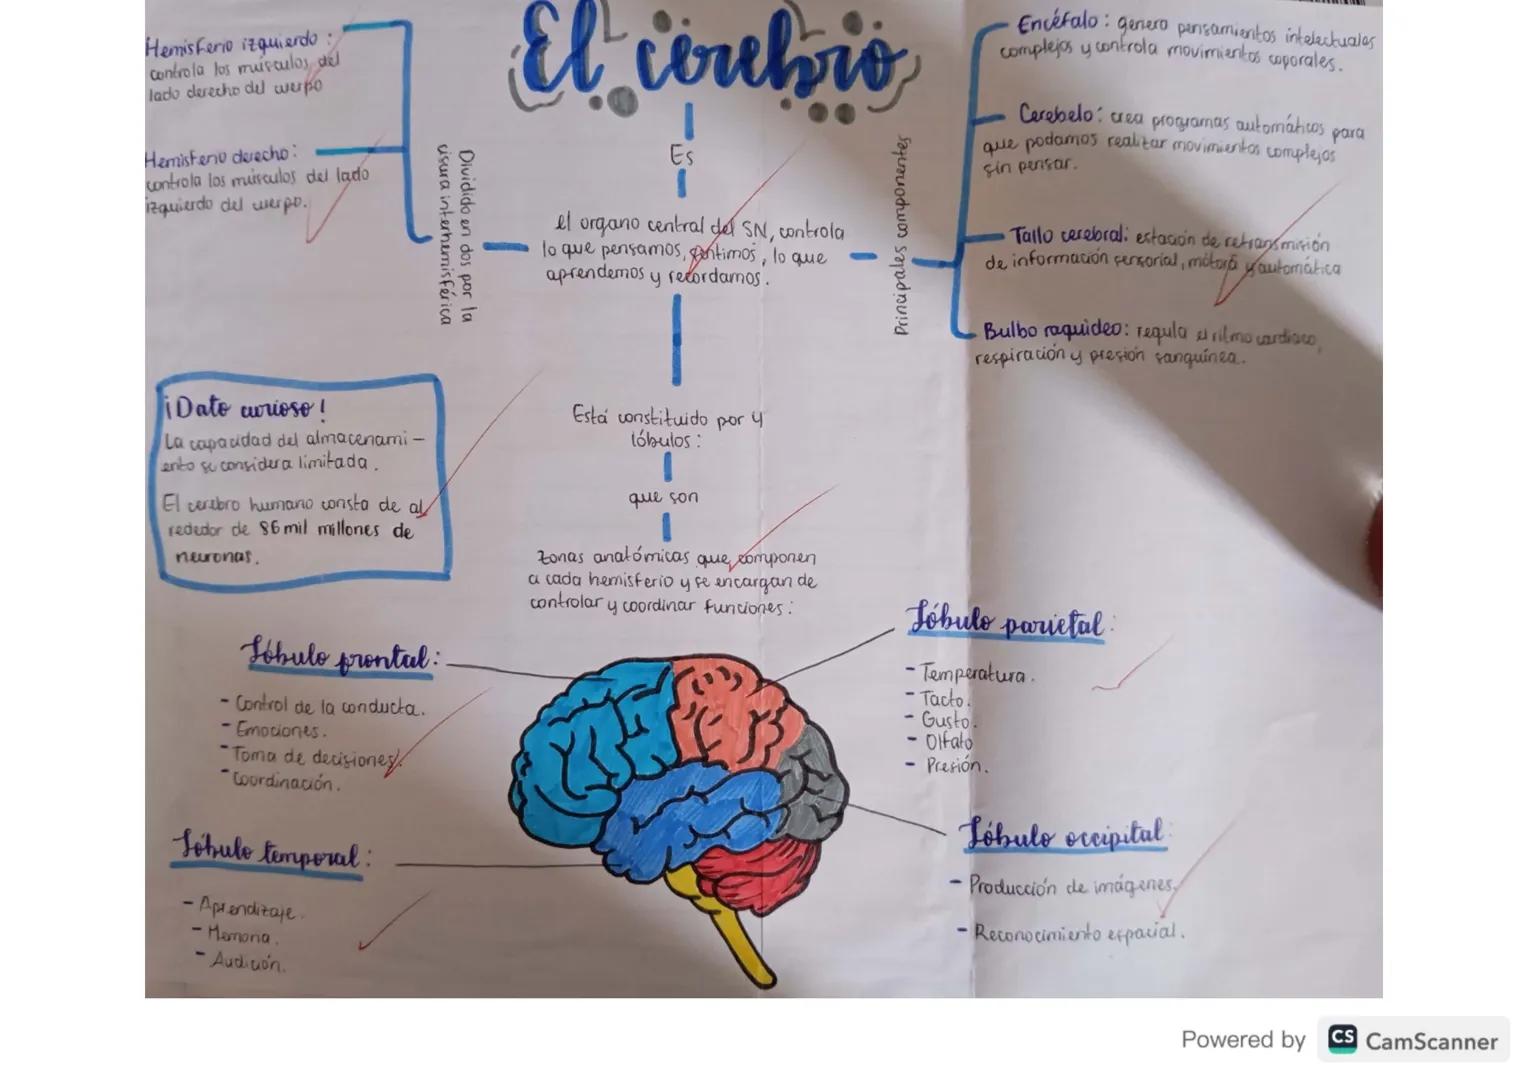 El cerebro
Hemisferio izquierdo :
controla los músculos del
lado derecho del cuerpo
Hemisferio derecho :
controla los músculos del lado
izquierdo del cuerpo.
Dividido en dos por la
cisura interhemisférica
Es
el organo central del SN, controla
lo que pensamos, sentimos, lo que
aprendemos y recordamos.
Principales componentes
Encéfalo : genera pensamientos intelectuales
complejos y controla movimientos coporales.
Cerebelo : crea programas automáticos para
que podamos realizar movimientos complejos
sin pensar.
Tallo cerebral: estación de retransmisión
de información sensorial, motora y automática
Bulbo raquideo: regula el ritmo cardiaco,
respiración y presión sanguínea.
¡Dato curioso!
La capacidad del almacenami-
ento se considera limitada.
El cerebro humano consta de al
rededor de 86 mil millones de
neuronas.
Está constituido por 4
lóbulos :
que son
zonas anatómicas que componen
a cada hemisferio y se encargan de
controlar y coordinar funciones :
Lóbulo frontal:
- Control de la conducta.
- Emociones.
- Toma de decisiones.
- Coordinación.
Lóbulo temporal :
- Aprendizaje.
- Memoria.
- Audición.
Lóbulo parietal :
- Temperatura.
- Tacto.
- Gusto.
- Olfato
- Presión.
Lóbulo occipital :
- Producción de imágenes.
- Reconocimiento espacial.
Powered by CS CamScanner